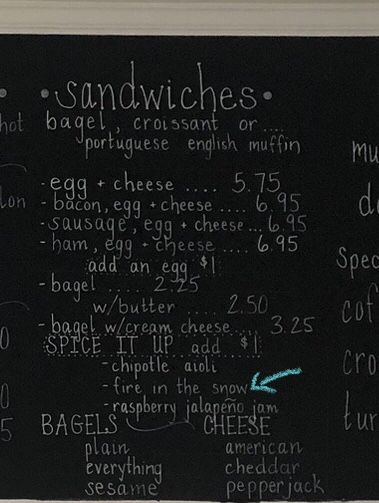 • sandwiches •
bagel, croissant or ....
portuguese english muffin
- egg + cheese .... 5.75
- bacon, egg + cheese .... 6.95
- sausage, egg + cheese ... 6.95
- ham, egg + cheese .... 6.95
add an egg $1
- bagel .... 2.25
w/butter .... 2.50
- bagel w/cream cheese.... 3.25
SPICE IT UP add $1
- chipotle aioli
- fire in the snow
- raspberry jalapeño jam
BAGELS CHEESE
plain american
everything cheddar
sesame pepperjack